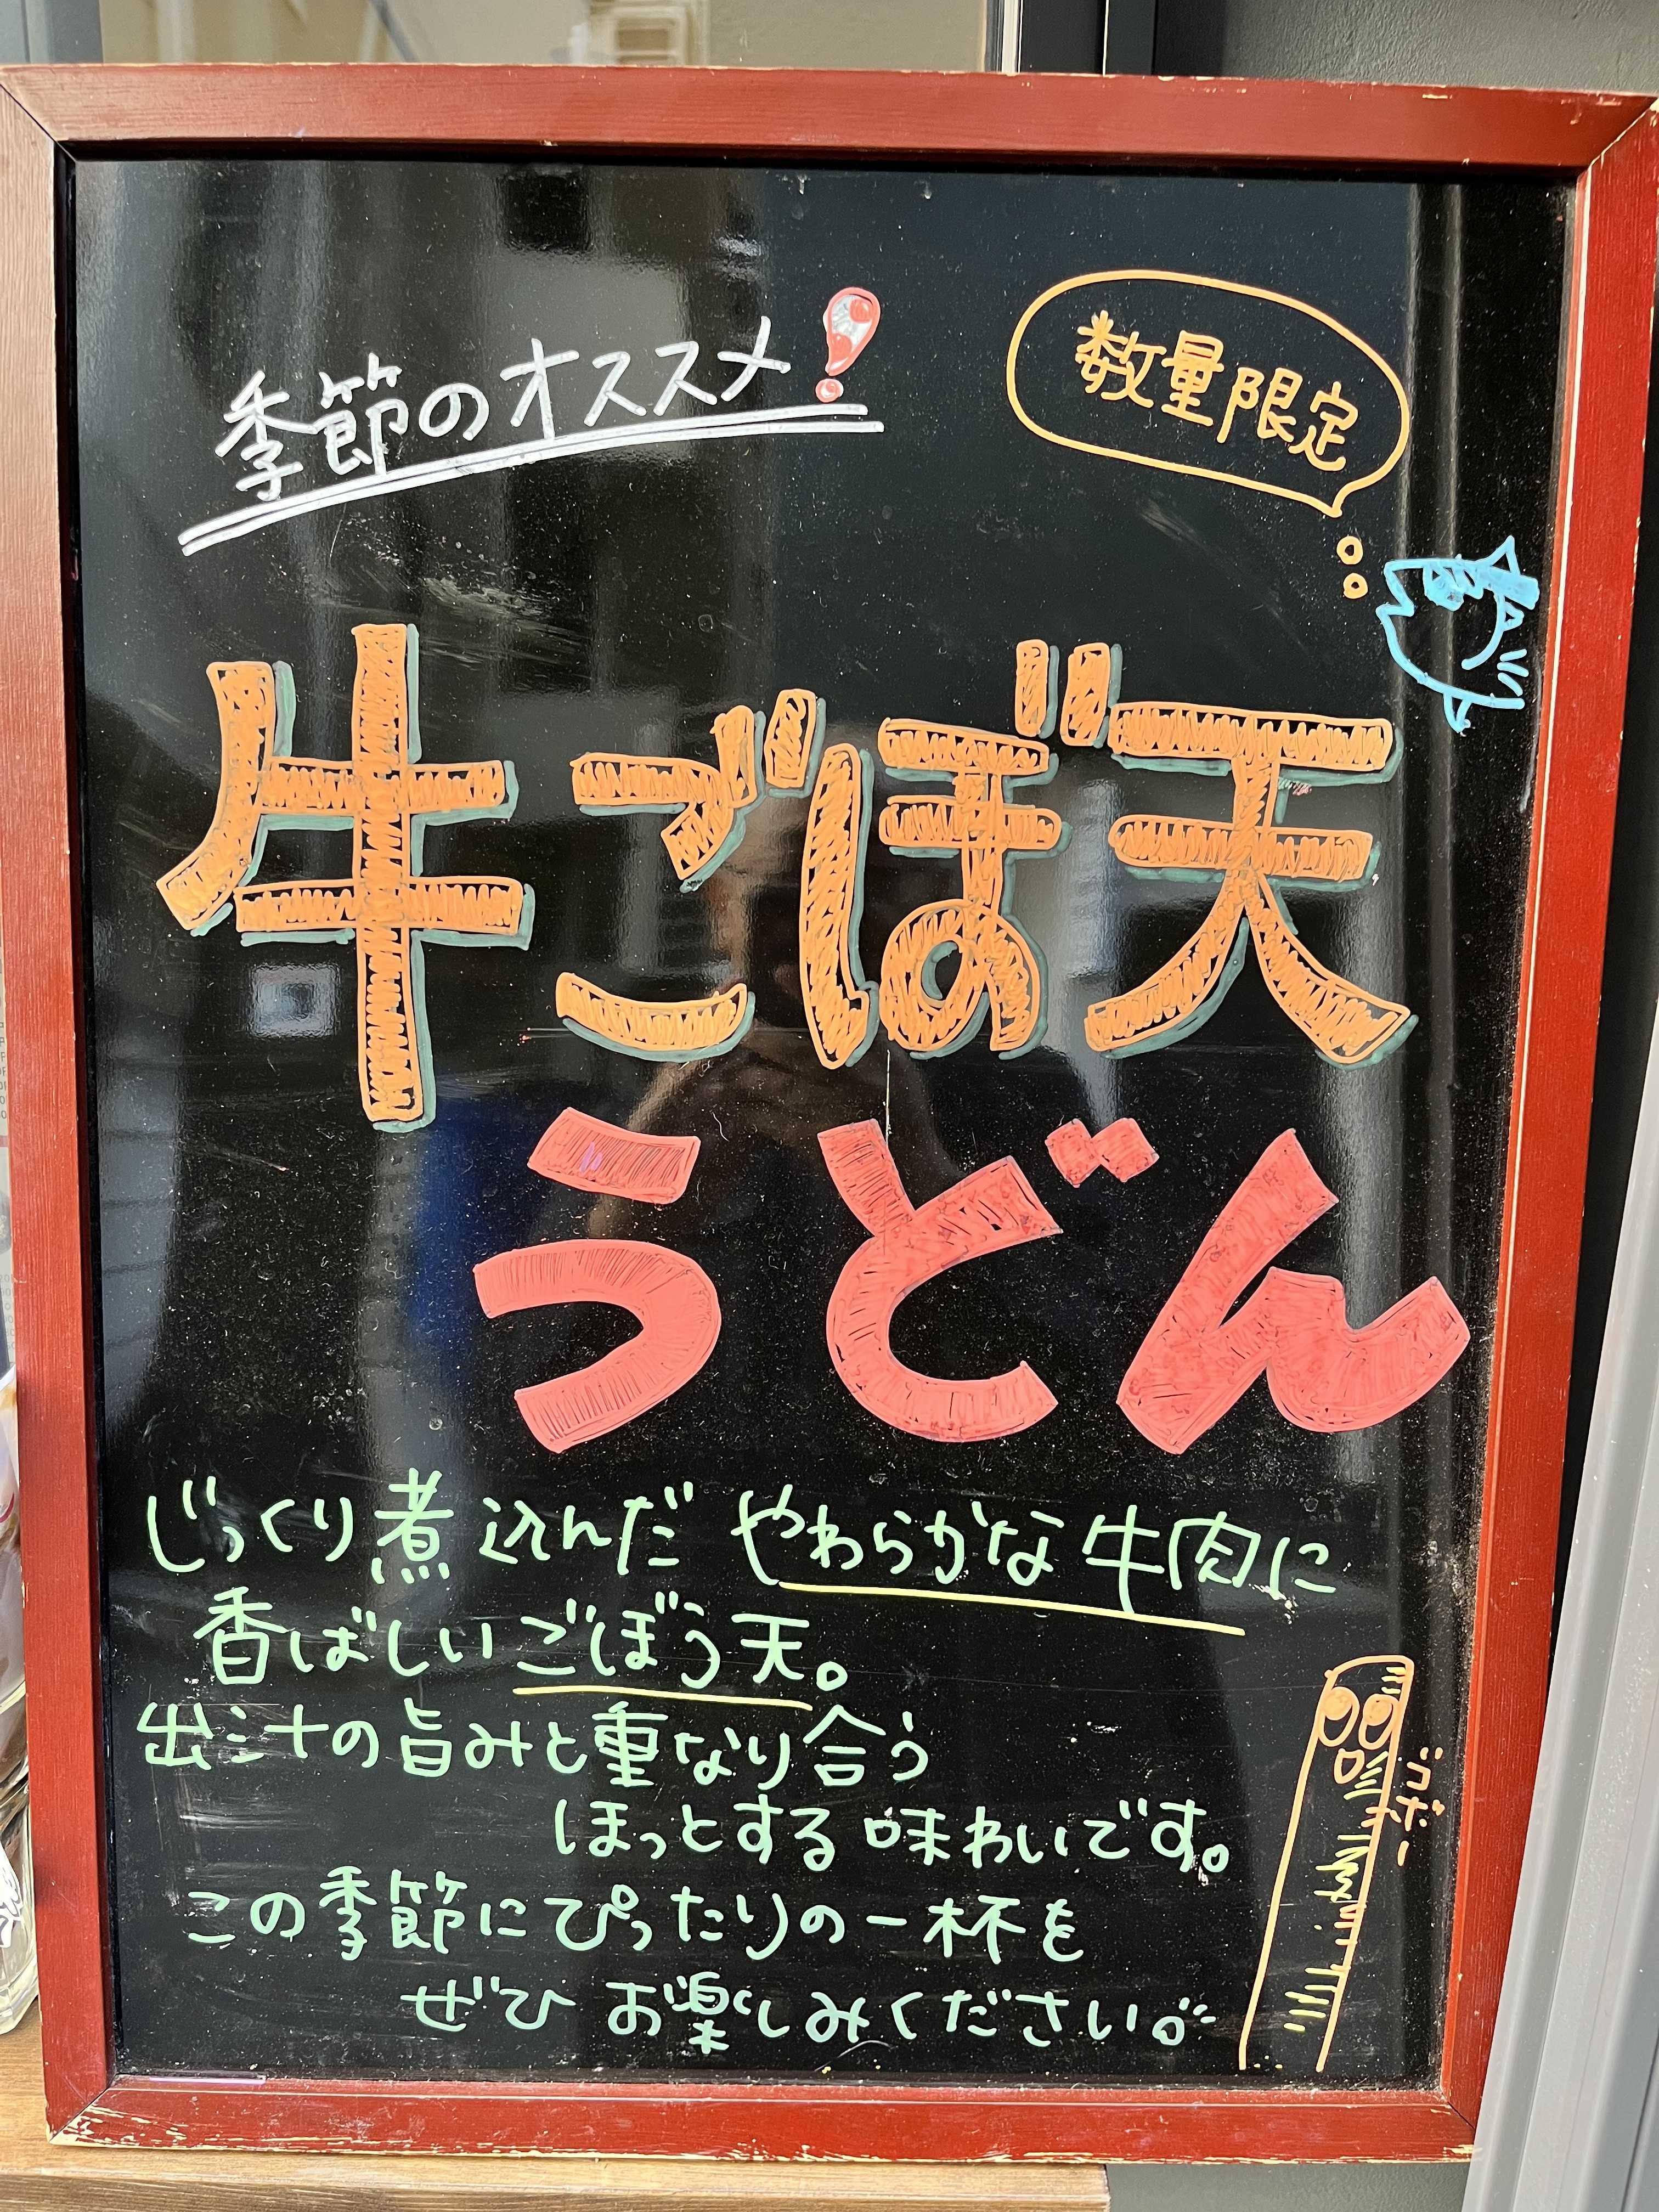 季節のオススメ!
数量限定
牛ごぼ天
うどん
じっくり煮込んだ やわらかな牛肉に
香ばしいごぼう天。
出汁の旨みと重なり合う
ほっとする味わいです。
この季節にぴったりの一杯を
ぜひお楽しみください。
ゴボー